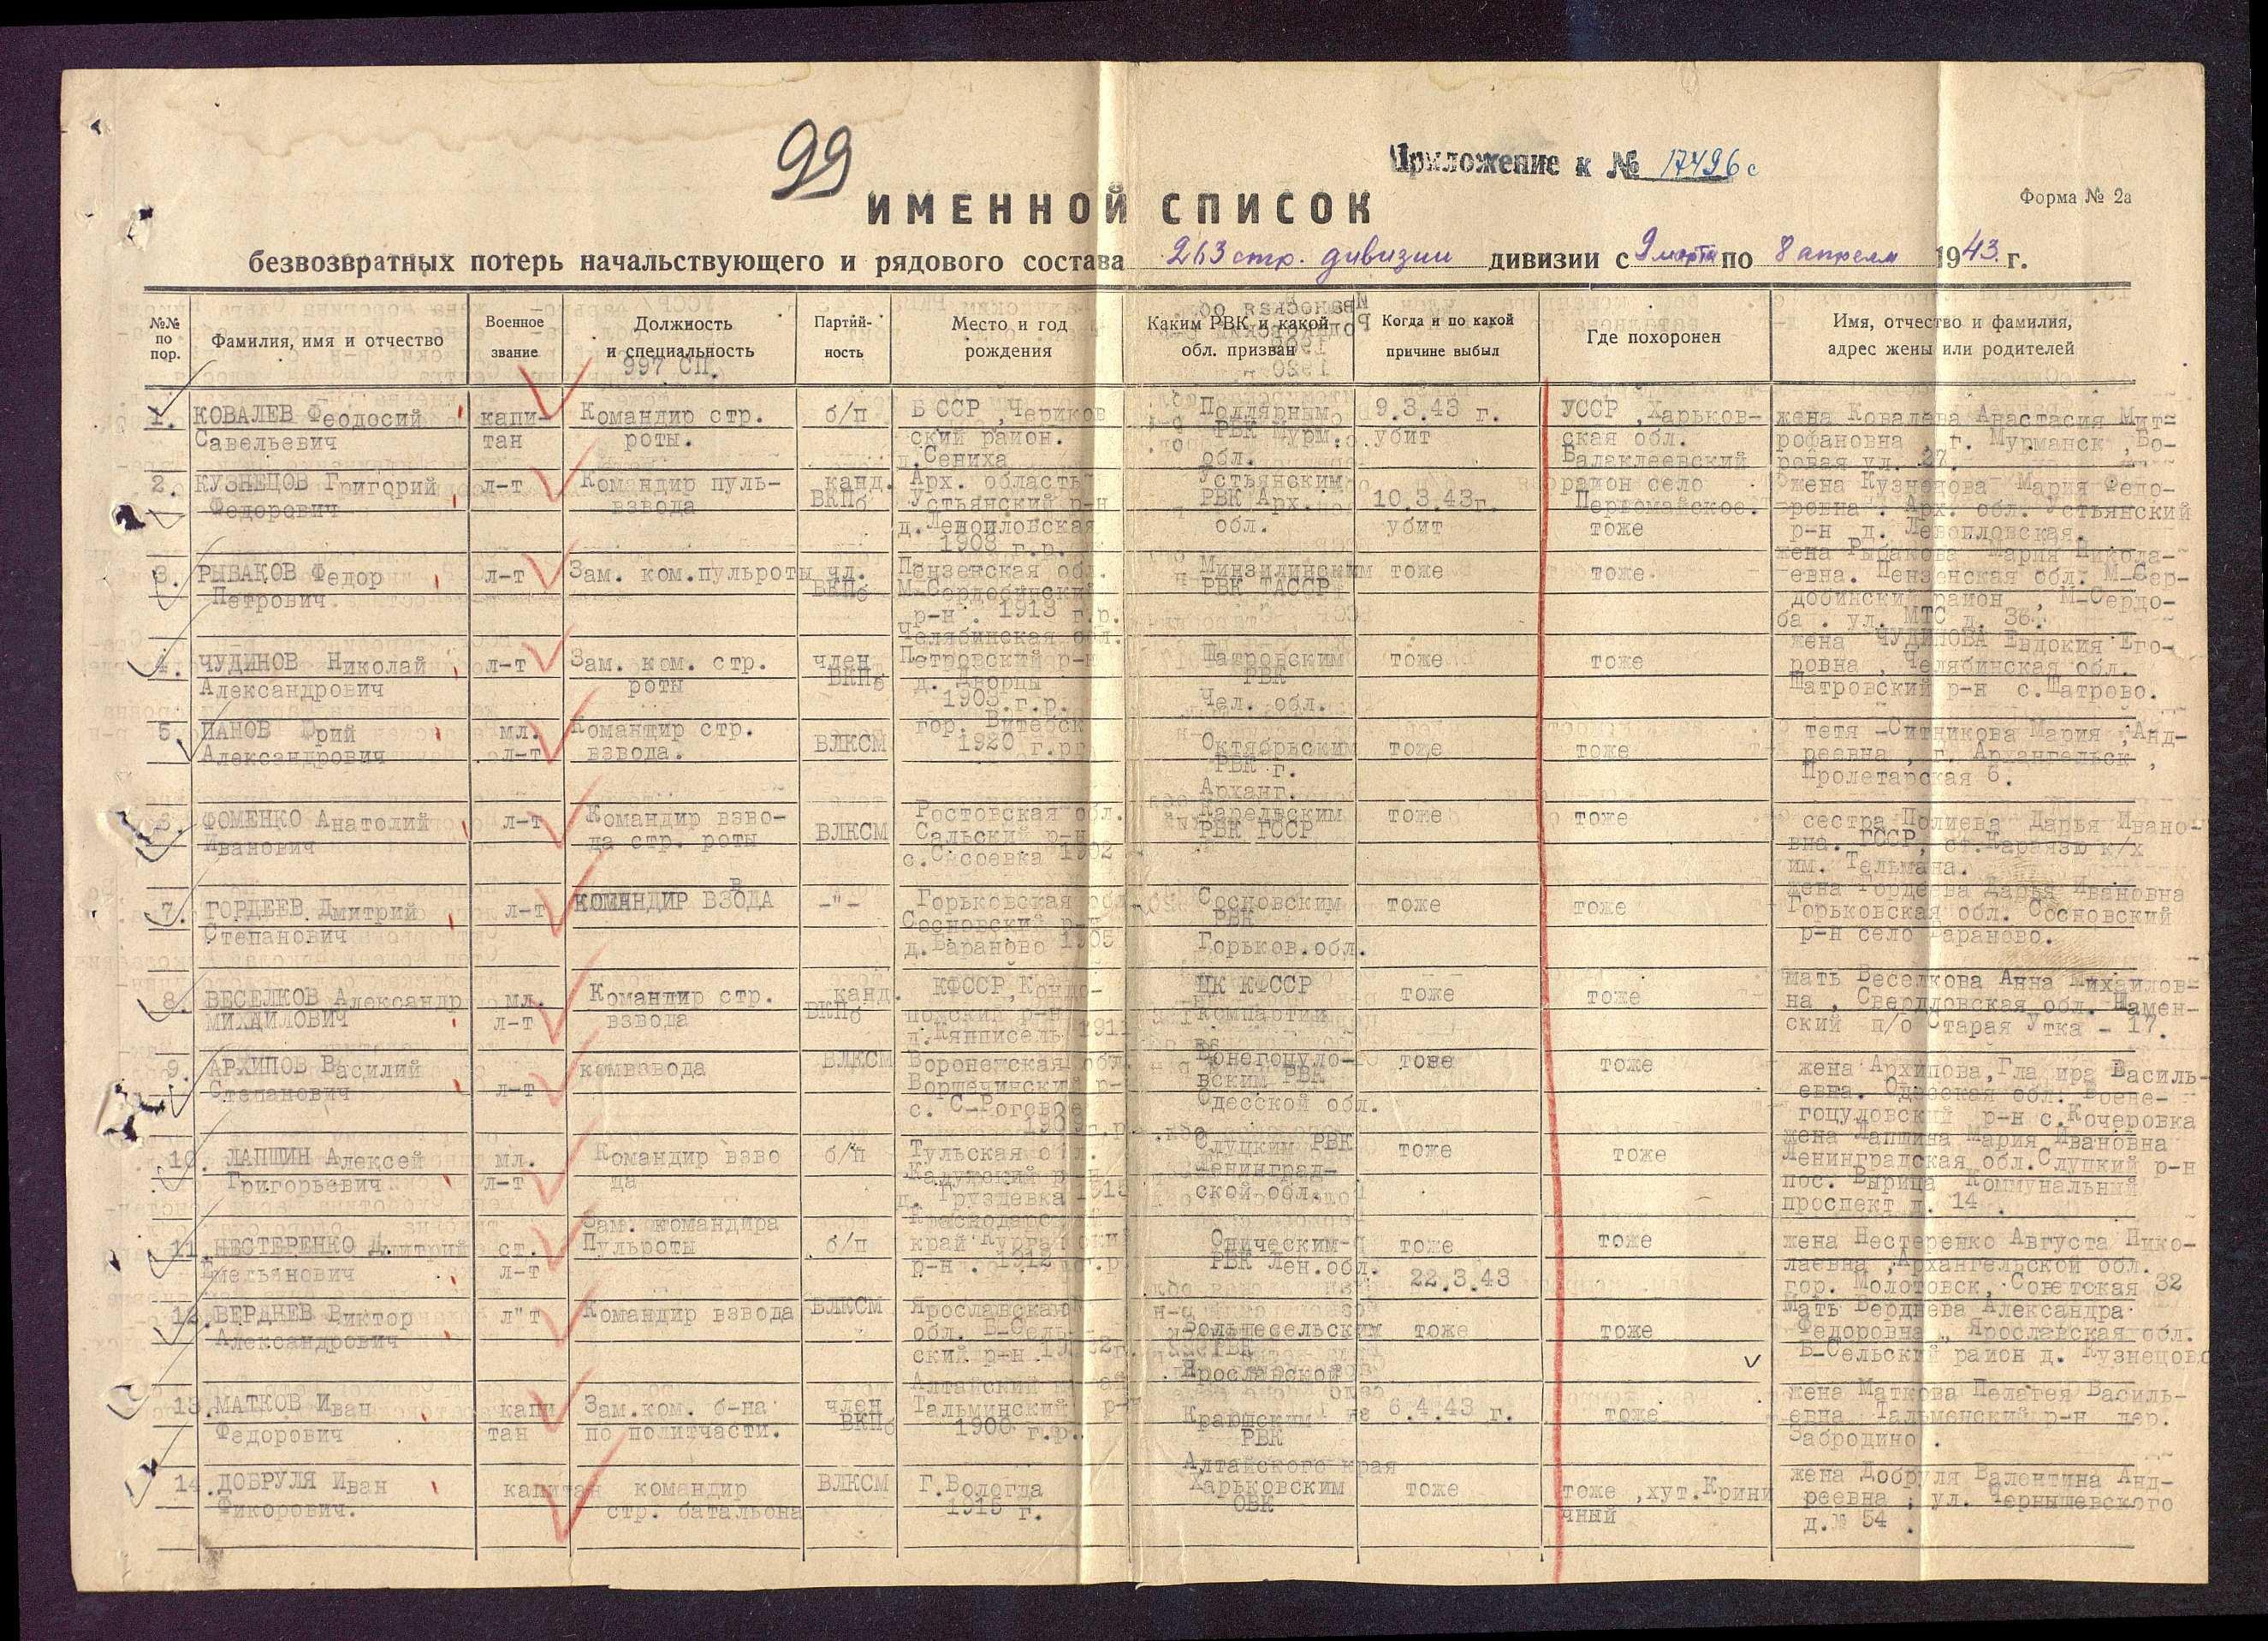 99
Приложение к № 17496с
ИМЕННОЙ СПИСОК
Форма № 2а
безвозвратных потерь начальствующего и рядового состава 263 стр. дивизии дивизии с 9 марта по 8 апреля 1943 г.
№№ по пор.
Фамилия, имя и отчество
Военное звание
Должность и специальность
997 СП.
Партийность
Место и год рождения
Каким РВК и какой обл. призван
Когда и по какой причине выбыл
Где похоронен
Имя, отчество и фамилия, адрес жены или родителей
1. КОВАЛЕВ Феодосий капи- Командир стр. б/п БССР, Чериков Поллярным 9.3.43 г. УССР, Харьков- жена Ковалева Анастасия Мит-
Савельевич тан роты. ский район. РВК Мурм. убит ская обл. рофановна, г. Мурманск, Бо-
д.Сениха обл. Балаклеевский ровая ул. 27.
2. КУЗНЕЦОВ Григорий л-т Командир пуль- канд. Арх. область Устьянским район село жена Кузнецова Мария Федо-
Федорович взвода ВКПб Устьянский р-н РВК Арх. 10.3.43г. Первомайское. ровна. Арх. обл. Устьянский
обл. убит тоже р-н д.
1908 г.р.
3. РЫБАКОВ Федор л-т Зам. ком.пульроты чл. Пензенская обл. Минзилинским тоже тоже жена Рыбакова Мария Никола-
Петрович ВКПб М-Сердобинский РВК ТАССР евна. Пензенская обл. М-Сер-
р-н. 1913 г.р. добинский район, М-Сердо-
ба. ул. МТС д. 36.
4. ЧУДИНОВ Николай л-т Зам. ком. стр. член Челябинская обл. Шатровским тоже тоже жена ЧУДИНОВА Евдокия Его-
Александрович роты ВКПб Петровский р-н РВК ровна, Челябинская обл.
д. Дворцы Чел. обл. Шатровский р-н с.Шатрово.
1903.г.р.
5. ПАНОВ Юрий мл. Командир стр. ВЛКСМ гор. Витебск Октябрьским тоже тоже тетя Ситникова Мария Анд-
Александрович л-т взвода. 1920 г.р. РВК г. реевна, г. Архангельск,
Арханг. Пролетарская 6.
6. ФОМЕНКО Анатолий л-т Командир взво- ВЛКСМ Ростовская обл. Карельским тоже тоже сестра Полиева Дарья Ивано-
Иванович да стр. роты Сальский р-н РВК ГССР вна. ГССР, к/х
с.Сысоевка им. Тельмана.
7. ГОРДЕЕВ Дмитрий л-т КОМАНДИР ВЗВОДА -"- Горьковская обл. Сосновским тоже тоже жена Гордеева Дарья Ивановна
Степанович Сосновский р-н РВК Горьковская обл. Сосновский
д.Бараново 1905 Горьков.обл. р-н село Бараново.
8. ВЕСЕЛКОВ Александр мл. Командир стр. канд. КФССР, Кондо- ЦК КФССР тоже тоже мать Веселкова Анна Михайлов-
МИХАЙЛОВИЧ л-т взвода ВКПб пожский р-н компартии на, Свердловская обл. Шамен-
1911 ский п/о Старая Утка - 17.
9. АРХИПОВ Василий л-т комвзвода ВЛКСМ Воронежская обл. тоже тоже жена Архипова, Василь-
Степанович вским РВК евна. Одесская обл.
с. С-Роговое Одесской обл. гоцуловский р-н с.Кочеровка
1909 г.р.
10. ЛАПШИН Алексей мл. Командир взво б/п Тульская обл. Слуцким РВК тоже тоже жена Лапшина Мария Ивановна
Григорьевич л-т да Калужский р-н Ленинград- Ленинградская обл.Слуцкий р-н
д. Груздевка 1915 ской обл. пос. Вырица Коммунальный
проспект д. 14.
11. НЕСТЕРЕНКО Дмитрий ст. Зам. командира б/п Краснодарский Оническим тоже тоже жена Нестеренко Августа Нико-
Емельянович л-т Пульроты край РВК Лен.обл. лаевна, Архангельской обл.
р-н. 1912 г.р. 22.3.43 гор. Молотовск, Советская 32
12. ВЕРДНЕВ Виктор л"т Командир взвода ВЛКСМ Ярославская Большесельским тоже тоже Мать Верднева Александра
Александрович обл. Б-Сель- РВК Федоровна, Ярославская обл.
ский р-н. Ярославской Б-Сельский район д. Кузнецово
13. МАТКОВ Иван капи Зам.ком. б-на член Алтайский край Краюшским 6.4.43 г. тоже жена Маткова Пелагея Василь-
Федорович тан по политчасти. ВКПб Тальминский р-н РВК евна Тальменский р-н дер.
1900 г.р. Алтайского края Забродино.
14. ДОБРУЛЯ Иван капитан командир ВЛКСМ Г.Вологда Харьковским тоже тоже, хут.Крини жена Добруля Валентина Анд-
Фикорович. стр. батальона 1915 г. ОВК чный реевна, ул. Чернышевского
д.№ 54.